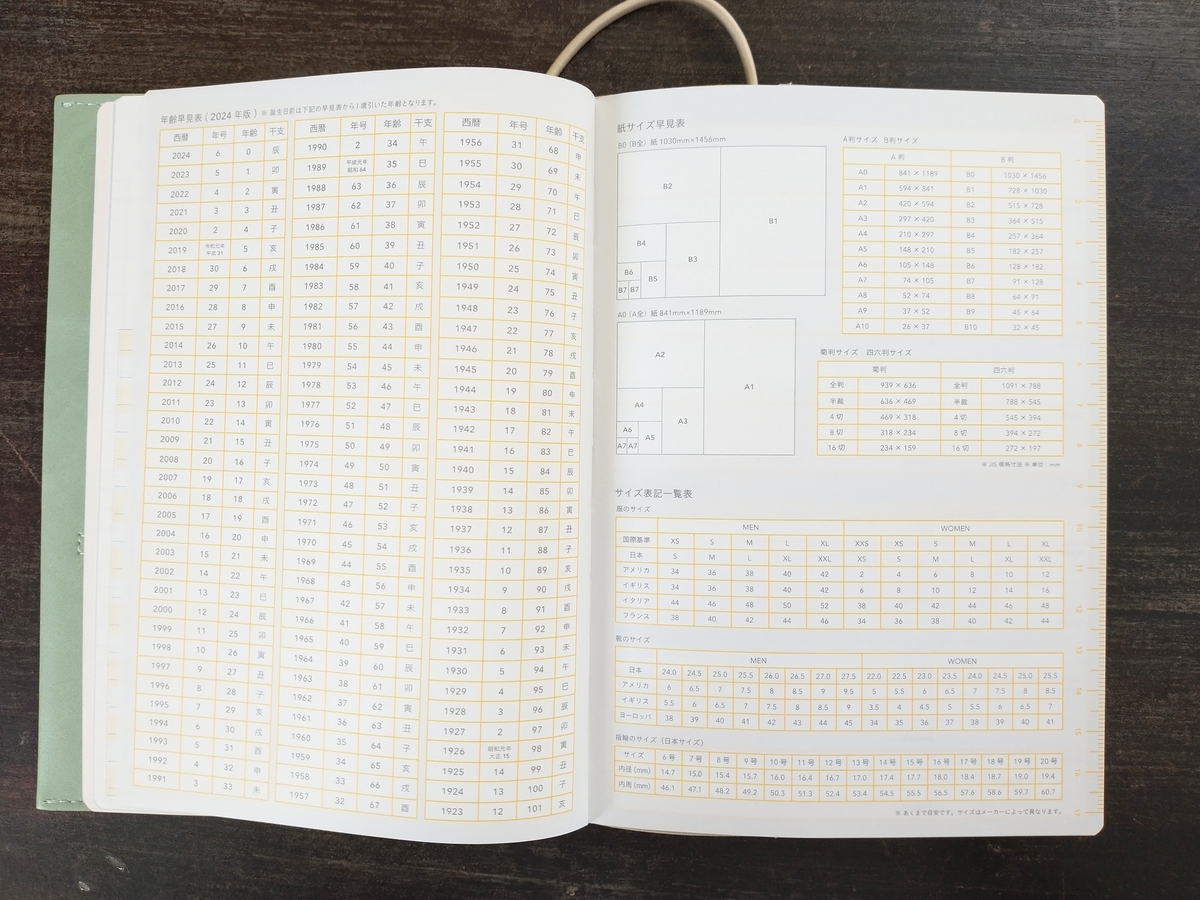 年齢早見表(2024年版) ※ 誕生日前は下記の早見表から1歳引いた年齢となります。
西暦 年号 年齢 干支
2024 6 0 辰
2023 5 1 卯
2022 4 2 寅
2021 3 3 丑
2020 2 4 子
2019 令和元年 平成31 5 亥
2018 30 6 戌
2017 29 7 酉
2016 28 8 申
2015 27 9 未
2014 26 10 午
2013 25 11 巳
2012 24 12 辰
2011 23 13 卯
2010 22 14 寅
2009 21 15 丑
2008 20 16 子
2007 19 17 亥
2006 18 18 戌
2005 17 19 酉
2004 16 20 申
2003 15 21 未
2002 14 22 午
2001 13 23 巳
2000 12 24 辰
1999 11 25 卯
1998 10 26 寅
1997 9 27 丑
1996 8 28 子
1995 7 29 亥
1994 6 30 戌
1993 5 31 酉
1992 4 32 申
1991 3 33 未
西暦 年号 年齢 干支
1990 2 34 午
1989 平成元年 昭和64 35 巳
1988 63 36 辰
1987 62 37 卯
1986 61 38 寅
1985 60 39 丑
1984 59 40 子
1983 58 41 亥
1982 57 42 戌
1981 56 43 酉
1980 55 44 申
1979 54 45 未
1978 53 46 午
1977 52 47 巳
1976 51 48 辰
1975 50 49 卯
1974 49 50 寅
1973 48 51 丑
1972 47 52 子
1971 46 53 亥
1970 45 54 戌
1969 44 55 酉
1968 43 56 申
1967 42 57 未
1966 41 58 午
1965 40 59 巳
1964 39 60 辰
1963 38 61 卯
1962 37 62 寅
1961 36 63 丑
1960 35 64 子
1959 34 65 亥
1958 33 66 戌
1957 32 67 酉
西暦 年号 年齢 干支
1956 31 68 申
1955 30 69 未
1954 29 70 午
1953 28 71 巳
1952 27 72 辰
1951 26 73 卯
1950 25 74 寅
1949 24 75 丑
1948 23 76 子
1947 22 77 亥
1946 21 78 戌
1945 20 79 酉
1944 19 80 申
1943 18 81 未
1942 17 82 午
1941 16 83 巳
1940 15 84 辰
1939 14 85 卯
1938 13 86 寅
1937 12 87 丑
1936 11 88 子
1935 10 89 亥
1934 9 90 戌
1933 8 91 酉
1932 7 92 申
1931 6 93 未
1930 5 94 午
1929 4 95 巳
1928 3 96 辰
1927 2 97 卯
1926 昭和元年 大正15 98 寅
1925 14 99 丑
1924 13 100 子
1923 12 101 亥
紙サイズ早見表
B0(B全)紙 1030mm×1456mm
B2
B1
B4
B3
B6
B5
B7 B7
A0(A全)紙 841mm×1189mm
A2
A1
A4
A3
A6
A5
A7 A7
A判サイズ B判サイズ
A判 B判
A0 841 × 1189 B0 1030 × 1456
A1 594 × 841 B1 728 × 1030
A2 420 × 594 B2 515 × 728
A3 297 × 420 B3 364 × 515
A4 210 × 297 B4 257 × 364
A5 148 × 210 B5 182 × 257
A6 105 × 148 B6 128 × 182
A7 74 × 105 B7 91 × 128
A8 52 × 74 B8 64 × 91
A9 37 × 52 B9 45 × 64
A10 26 × 37 B10 32 × 45
菊判サイズ 四六判サイズ
菊判 四六判
全判 939 × 636 全判 1091 × 788
半裁 636 × 469 半裁 788 × 545
4切 469 × 318 4切 545 × 394
8切 318 × 234 8切 394 × 272
16切 234 × 159 16切 272 × 197
※ JIS規格寸法 ※ 単位:mm
サイズ表記一覧表
服のサイズ
MEN WOMEN
国際基準 XS S M L XL XXS XS S M L XL
日本 S M L XL XXL XS S M L XL XXL
アメリカ 34 36 38 40 42 2 4 6 8 10 12
イギリス 34 36 38 40 42 6 8 10 12 14 16
イタリア 44 46 48 50 52 38 40 42 44 46 48
フランス 38 40 42 44 46 34 36 38 40 42 44
靴のサイズ
MEN WOMEN
日本 24.0 24.5 25.0 25.5 26.0 26.5 27.0 27.5 22.0 22.5 23.0 23.5 24.0 24.5 25.0 25.5
アメリカ 6 6.5 7 7.5 8 8.5 9 9.5 5 5.5 6 6.5 7 7.5 8 8.5
イギリス 5.5 6 6.5 7 7.5 8 8.5 9 3.5 4 4.5 5 5.5 6 6.5 7
ヨーロッパ 38 39 40 41 42 43 44 45 34 35 36 37 38 39 40 41
指輪のサイズ(日本サイズ)
サイズ 6号 7号 8号 9号 10号 11号 12号 13号 14号 15号 16号 17号 18号 19号 20号
内径(mm) 14.7 15.0 15.4 15.7 16.0 16.4 16.7 17.0 17.4 17.7 18.0 18.4 18.7 19.0 19.4
内周(mm) 46.1 47.1 48.2 49.2 50.3 51.3 52.4 53.4 54.5 55.5 56.5 57.6 58.6 59.7 60.7
※ あくまで目安です。サイズはメーカーによって異なります。